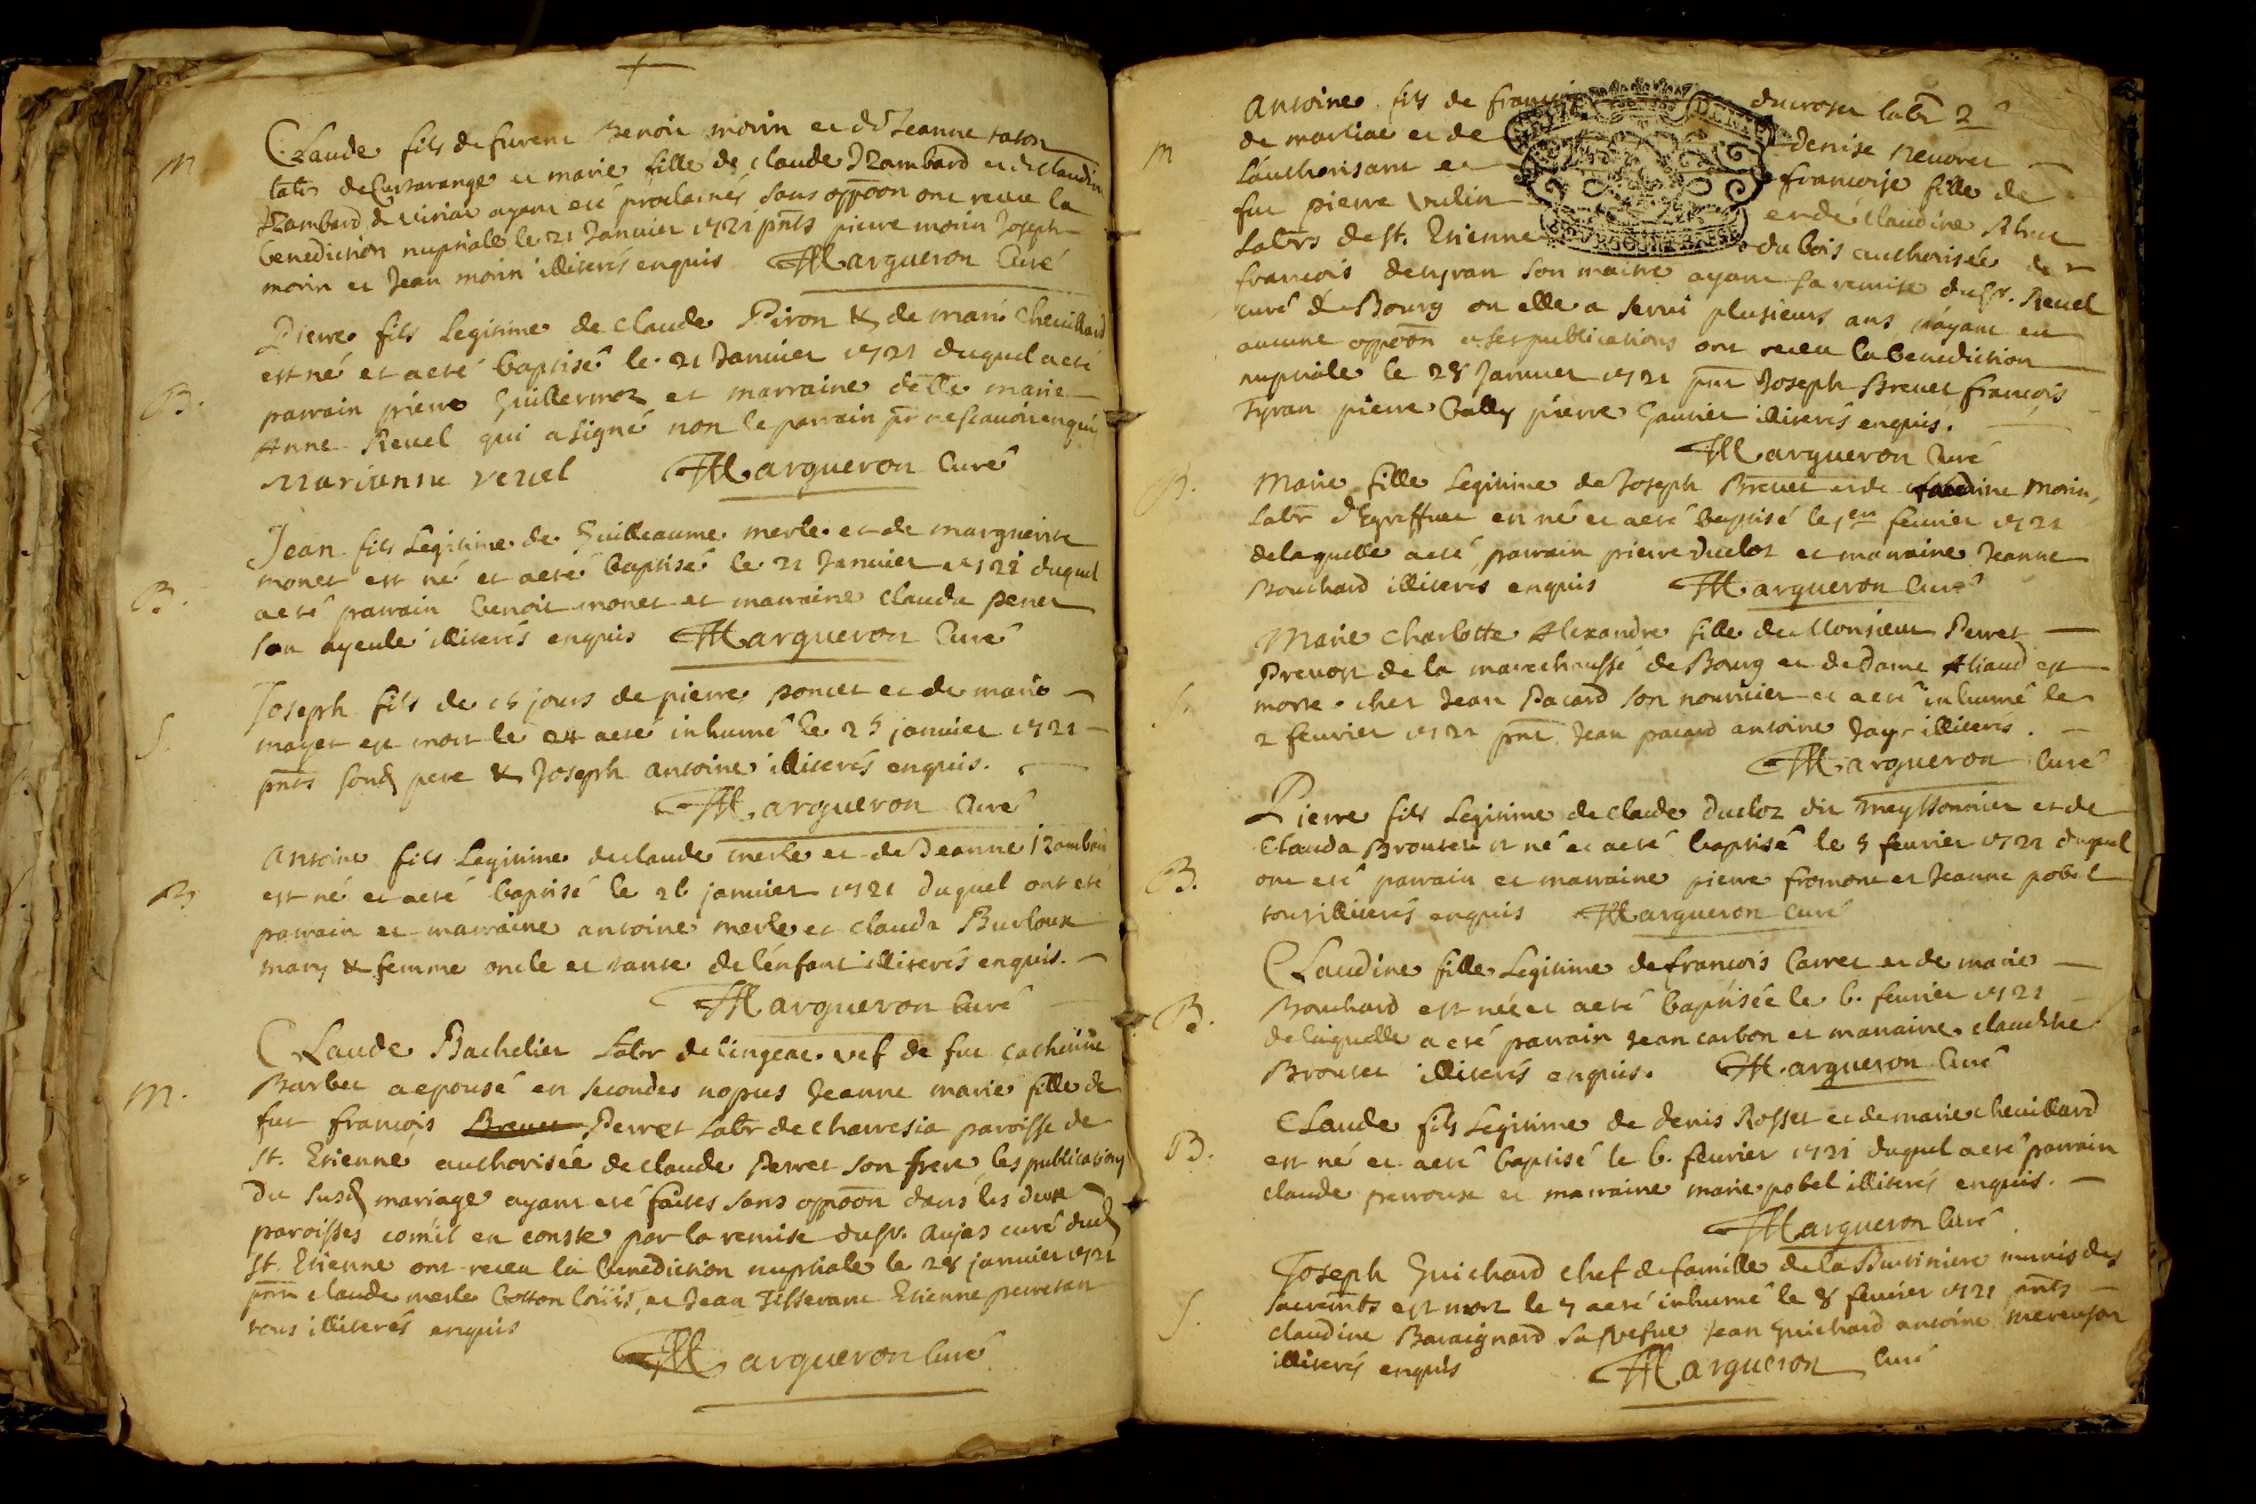 M
Claude fils de furent Benoit morin et de Jeanne
labr de Cussarange et marie fille de claude Izambard et de Claudine
Izambard de viriat ayant eté proclamés sans oppoon ont receu la
benediction nuptiale le 21 Janvier 1721 pnts pierre morin Joseph
morin et Jean morin illiterés enquis Margueron Curé
B.
Pierre fils Legitime de claude Piron & de marie Chevillard
est né et a eté baptisé le 21 Janvier 1721 duquel a eté
parrain pierre Guillermoz et marraine delle marie
Anne Revel qui a signé non le parrain pr ne scavoir enquis
Marianne revel Margueron Curé
B.
Jean fils Legitime de Guilleaume merle et de marguerite
monet est né et a eté baptisé le 21 Janvier 1721 duquel
a eté parrain benoit monet et marraine clauda penet
son ayeule illiterés enquis Margueron Curé
S.
Joseph fils de 15 jours de pierre poncet et de marie
mayet est mort le 24 a eté inhumé le 25 janvier 1721
pnts sond pere & Joseph antoine illiterés enquis.
Margueron Curé
B
Antoine fils Legitime de claude merle et de Jeanne Izambard
est né et a eté baptisé le 26 janvier 1721 duquel ont eté
parrain et marraine antoine merle et clauda Burloux
mary & femme oncle et tante de l'enfant illiterés enquis.
Margueron Curé
M.
Claude Bachelier Labr de lingeat vef de fut catherine
Barbet a epousé en secondes nopces Jeanne marie fille de
fut françois Brevet Perret Labr de charresia paroisse de
St. Etienne authorisée de claude Perret son frere les publications
du susd mariage ayant eté faites sans oppoon dans les deux
paroisses com'il en conste par la remise du sr. Aujas curé dud
St. Etienne ont receu la benediction nuptiale le 28 janvier 1721
pnts claude merle Cotton loüis et Jean Tisserant Etienne perretan
tous illiterés enquis
Margueron Curé
M
Antoine fils de françois ducroset labr
de marliat et de denise nevoret
L'authorisant et françoise fille de
fut pierre vulin et de claudine
Labrs de St. Etienne du bois authorisée de
françois detyran son maitre ayant la remise du sr. Revel
curé de Bourg ou elle a servi plusieurs ans n'ayant eu
aucune oppoon a ses publications ont receu la benediction
nuptiale le 28 Janvier 1721 pnt Joseph Brevet françois
Tyran pierre Bally pierre Gauvier illiterés enquis.
Margueron Curé
B.
Marie fille Legitime de Joseph Brevet et de claudine Morin
Labr d'Egreffuet est né et a eté baptisé le 1er fevrier 1721
de laquelle a eté parrain pierre ducloz et marraine Jeanne
Bouchard illiterés enquis Margueron Curé
S.
Marie Charlotte Alexandre fille de Monsieur Perret
Prevost de la marechaussé de Bourg et de Dame Aliaud est
morte chez Jean Pacard son nourrisier et a eté inhumé le
2 fevrier 1721 pnt Jean pacard antoine Jay illiterés.
Margueron Curé
B.
Pierre fils Legitime de claude ducloz dit meyssonnier et de
Clauda Broutet est né et a eté baptisé le 5 fevrier 1721 duquel
ont eté parrain et marraine pierre fromont et Jeanne pobel
tous illiterés enquis Margueron Curé
B.
Claudine fille Legitime de françois Carret et de marie
Bouchard est née et a eté baptisée le 6. fevrier 1721
de laquelle a eté parrain Jean carbon et marraine claudine
Broutet illiterés enquis. Margueron Curé
B.
Claude fils Legitime de denis Rosset et de marie chevillard
est né et a eté baptisé le 6. fevrier 1721 duquel a eté parrain
claude perroux et marraine marie pobel illiterés enquis.
Margueron Curé
S.
Joseph Guichard chef de famille de la Bussiniere munis des
sacremts est mort le 7 a eté inhumé le 8 fevrier 1721 pnts
claudine Bavaignard sa vefve Jean Guichard antoine
illiterés enquis Margueron Curé